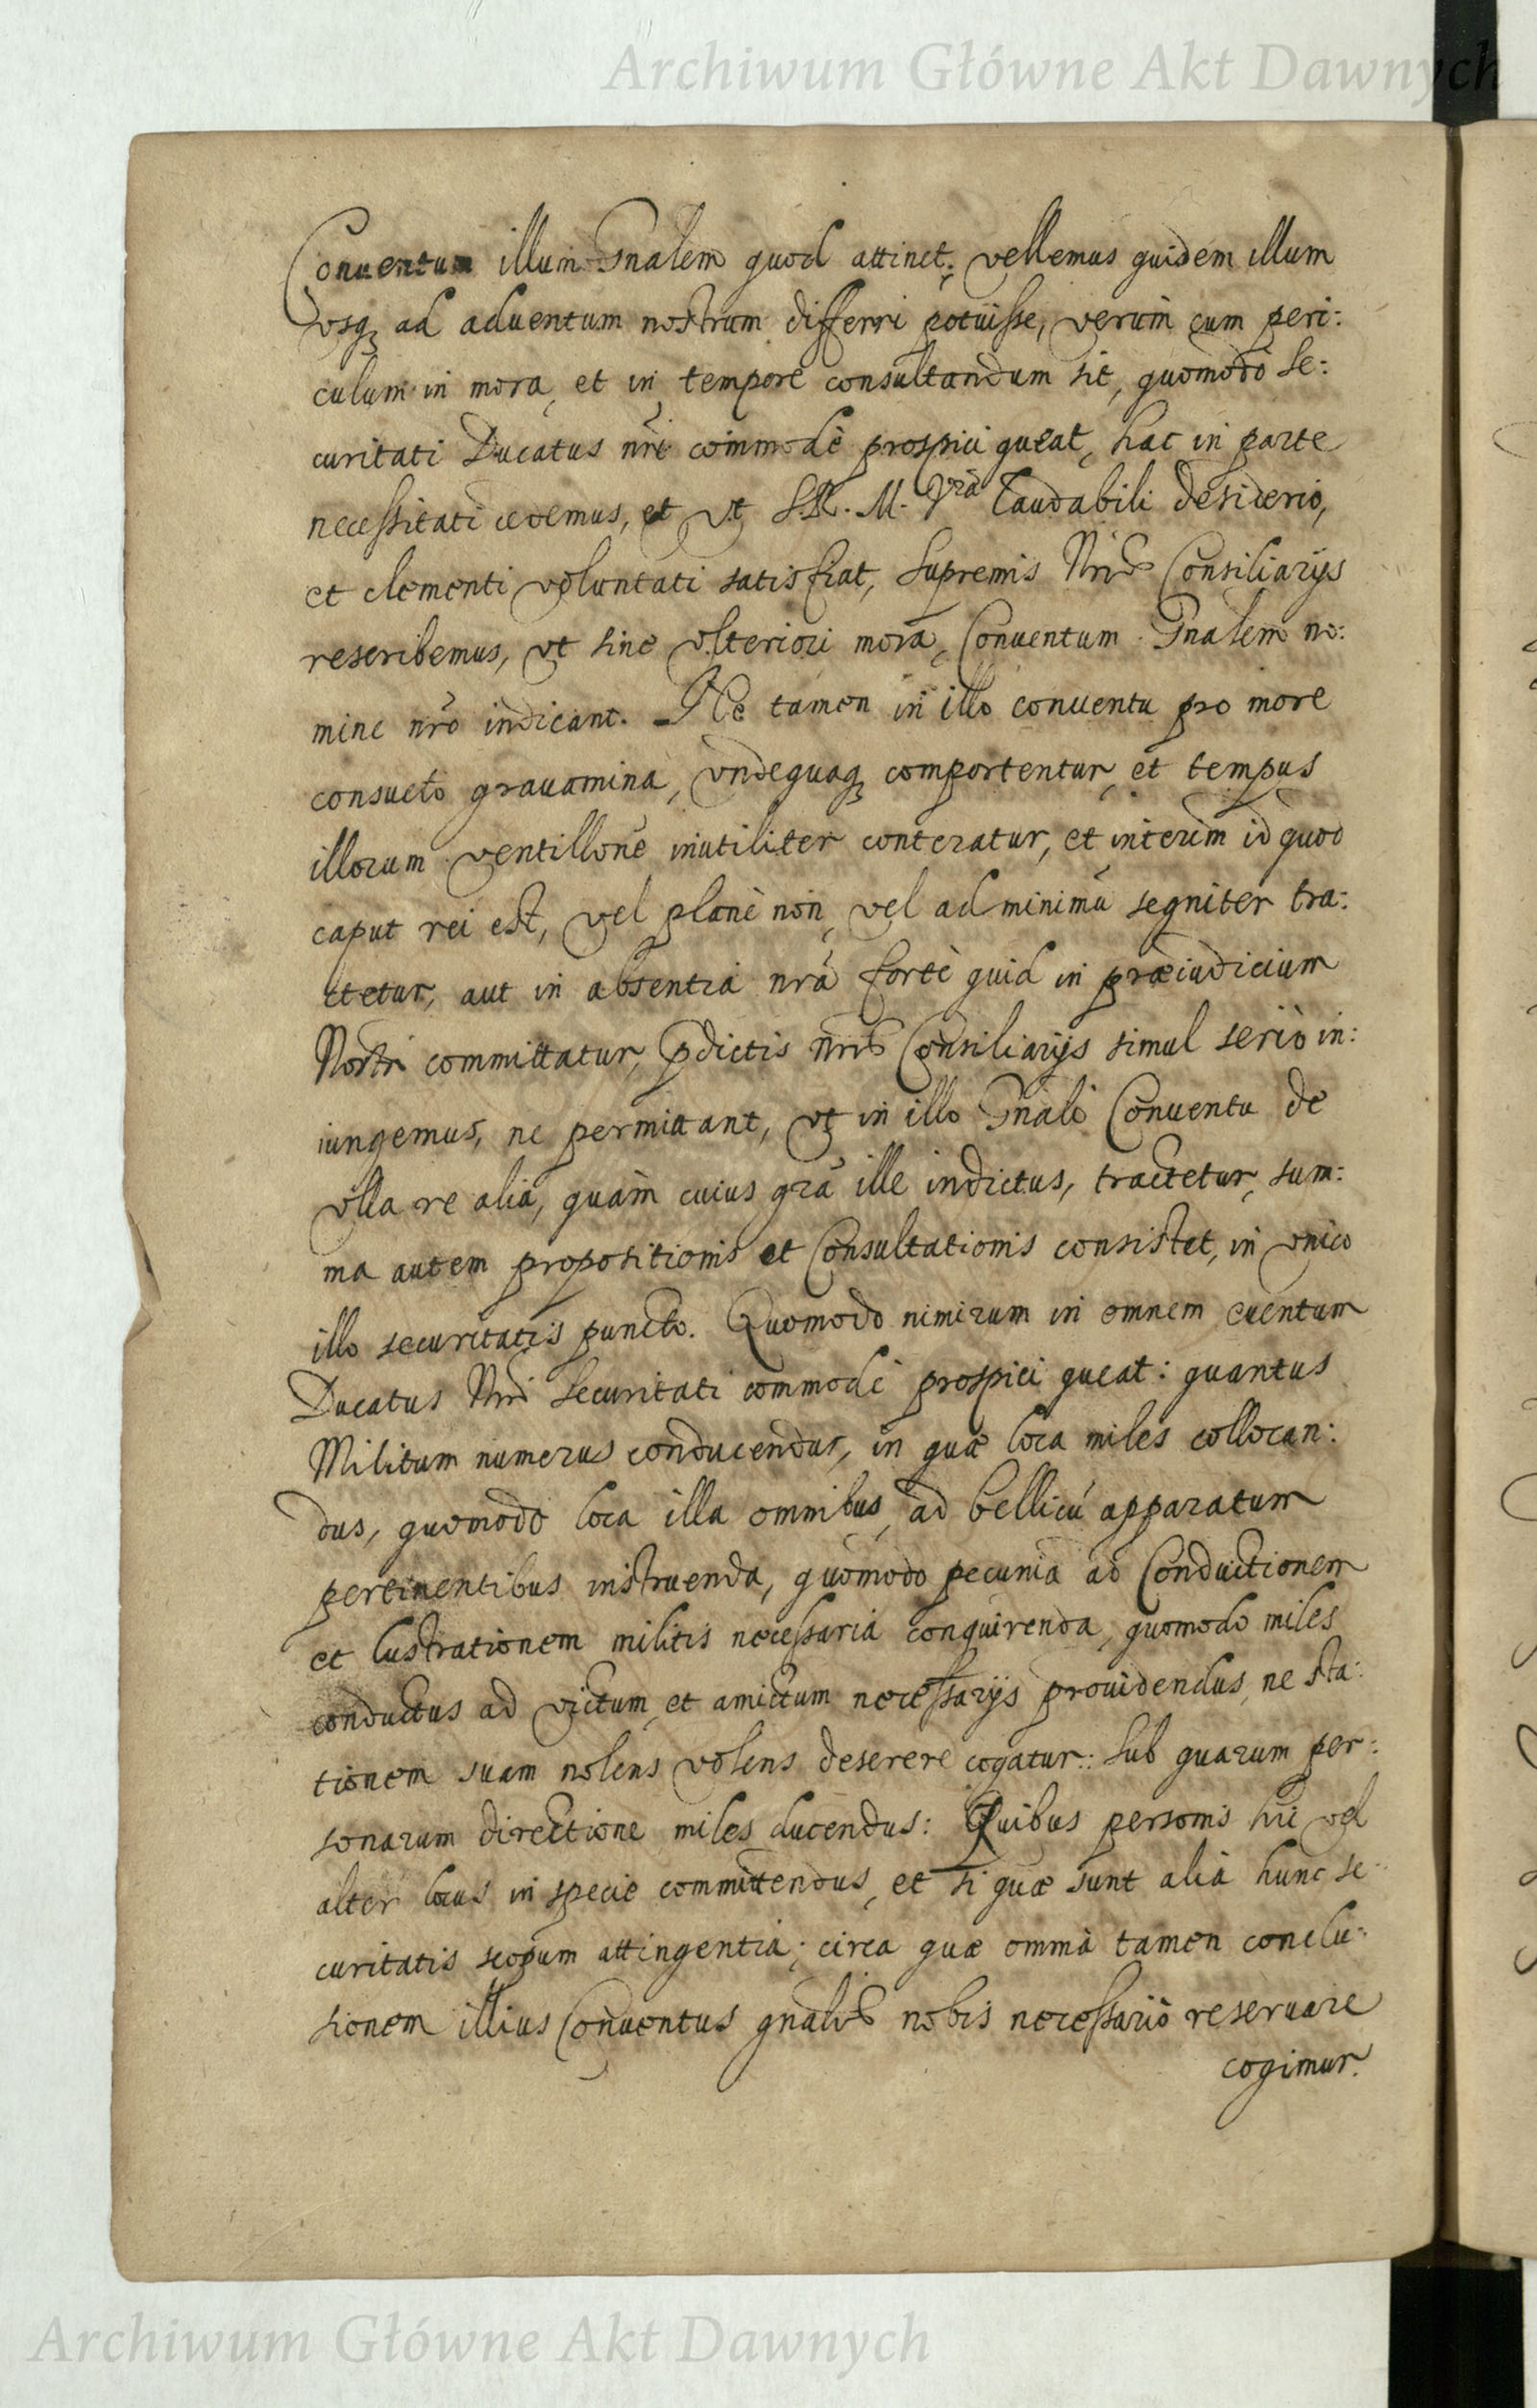 Archiwum Główne Akt Dawnych
Conuentum illum Gnalem quod attinet; vellemus quidem illum
vsq ad aduentum nostrum differri potuisse, verùm cum peri:
culum in mora, et in tempore consultandum sit, quomodò se:
curitati Ducatus nri commodè prospici queat, hac in parte
necessitati cedemus, et vt S.R.M. Vra laudabili desiderio,
et clementi voluntati satisfiat, Supremis Nris Consiliarijs
rescribemus, vt sine vlteriori mora, Conuentum Gnalem no:
mine nro indicant. Ne tamen in illo conuentu pro more
consueto grauamina, vndequaq comportentur, et tempus
illorum ventillone inutiliter conteratur, et interim id quod
caput rei est, vel planè non, vel ad minimū segniter tra:
ctetur, aut in absentia nrā fortè quid in præiudicium
Nostri committatur, pdictis nris Consiliarijs simul seriò in:
iungemus, ne permittant, vt in illo Gnali Conuentu de
vlla re alia, quàm cuius grā ille indictus, tractetur, sum:
ma autem propositionis et Consultationis consistet, in vnico
illo securitatis puncto. Quomodo nimirum in omnem euentum
Ducatus Nri securitati commodè prospici queat: quantus
Militum numerus conducendus, in quæ loca miles collocan:
dus, quomodo loca illa omnibus, ad bellicū apparatum
pertinentibus instruenda, quomodo pecunia ad Conductionem
et lustrationem militis necessaria conquirenda, quomodo miles
conductus ad victum et amictum necessarijs prouidendus, ne sta:
tionem suam nolens volens deserere cogatur: Sub quarum per:
sonarum directione miles ducendus: Quibus personis hic vel
alter locus in specie committendus, et si quæ sunt alia hunc se:
curitatis scopum attingentia; circa quæ omnia tamen conclu:
sionem illius Conuentus gnalis nobis necessariò reseruare
cogimur.
Archiwum Główne Akt Dawnych